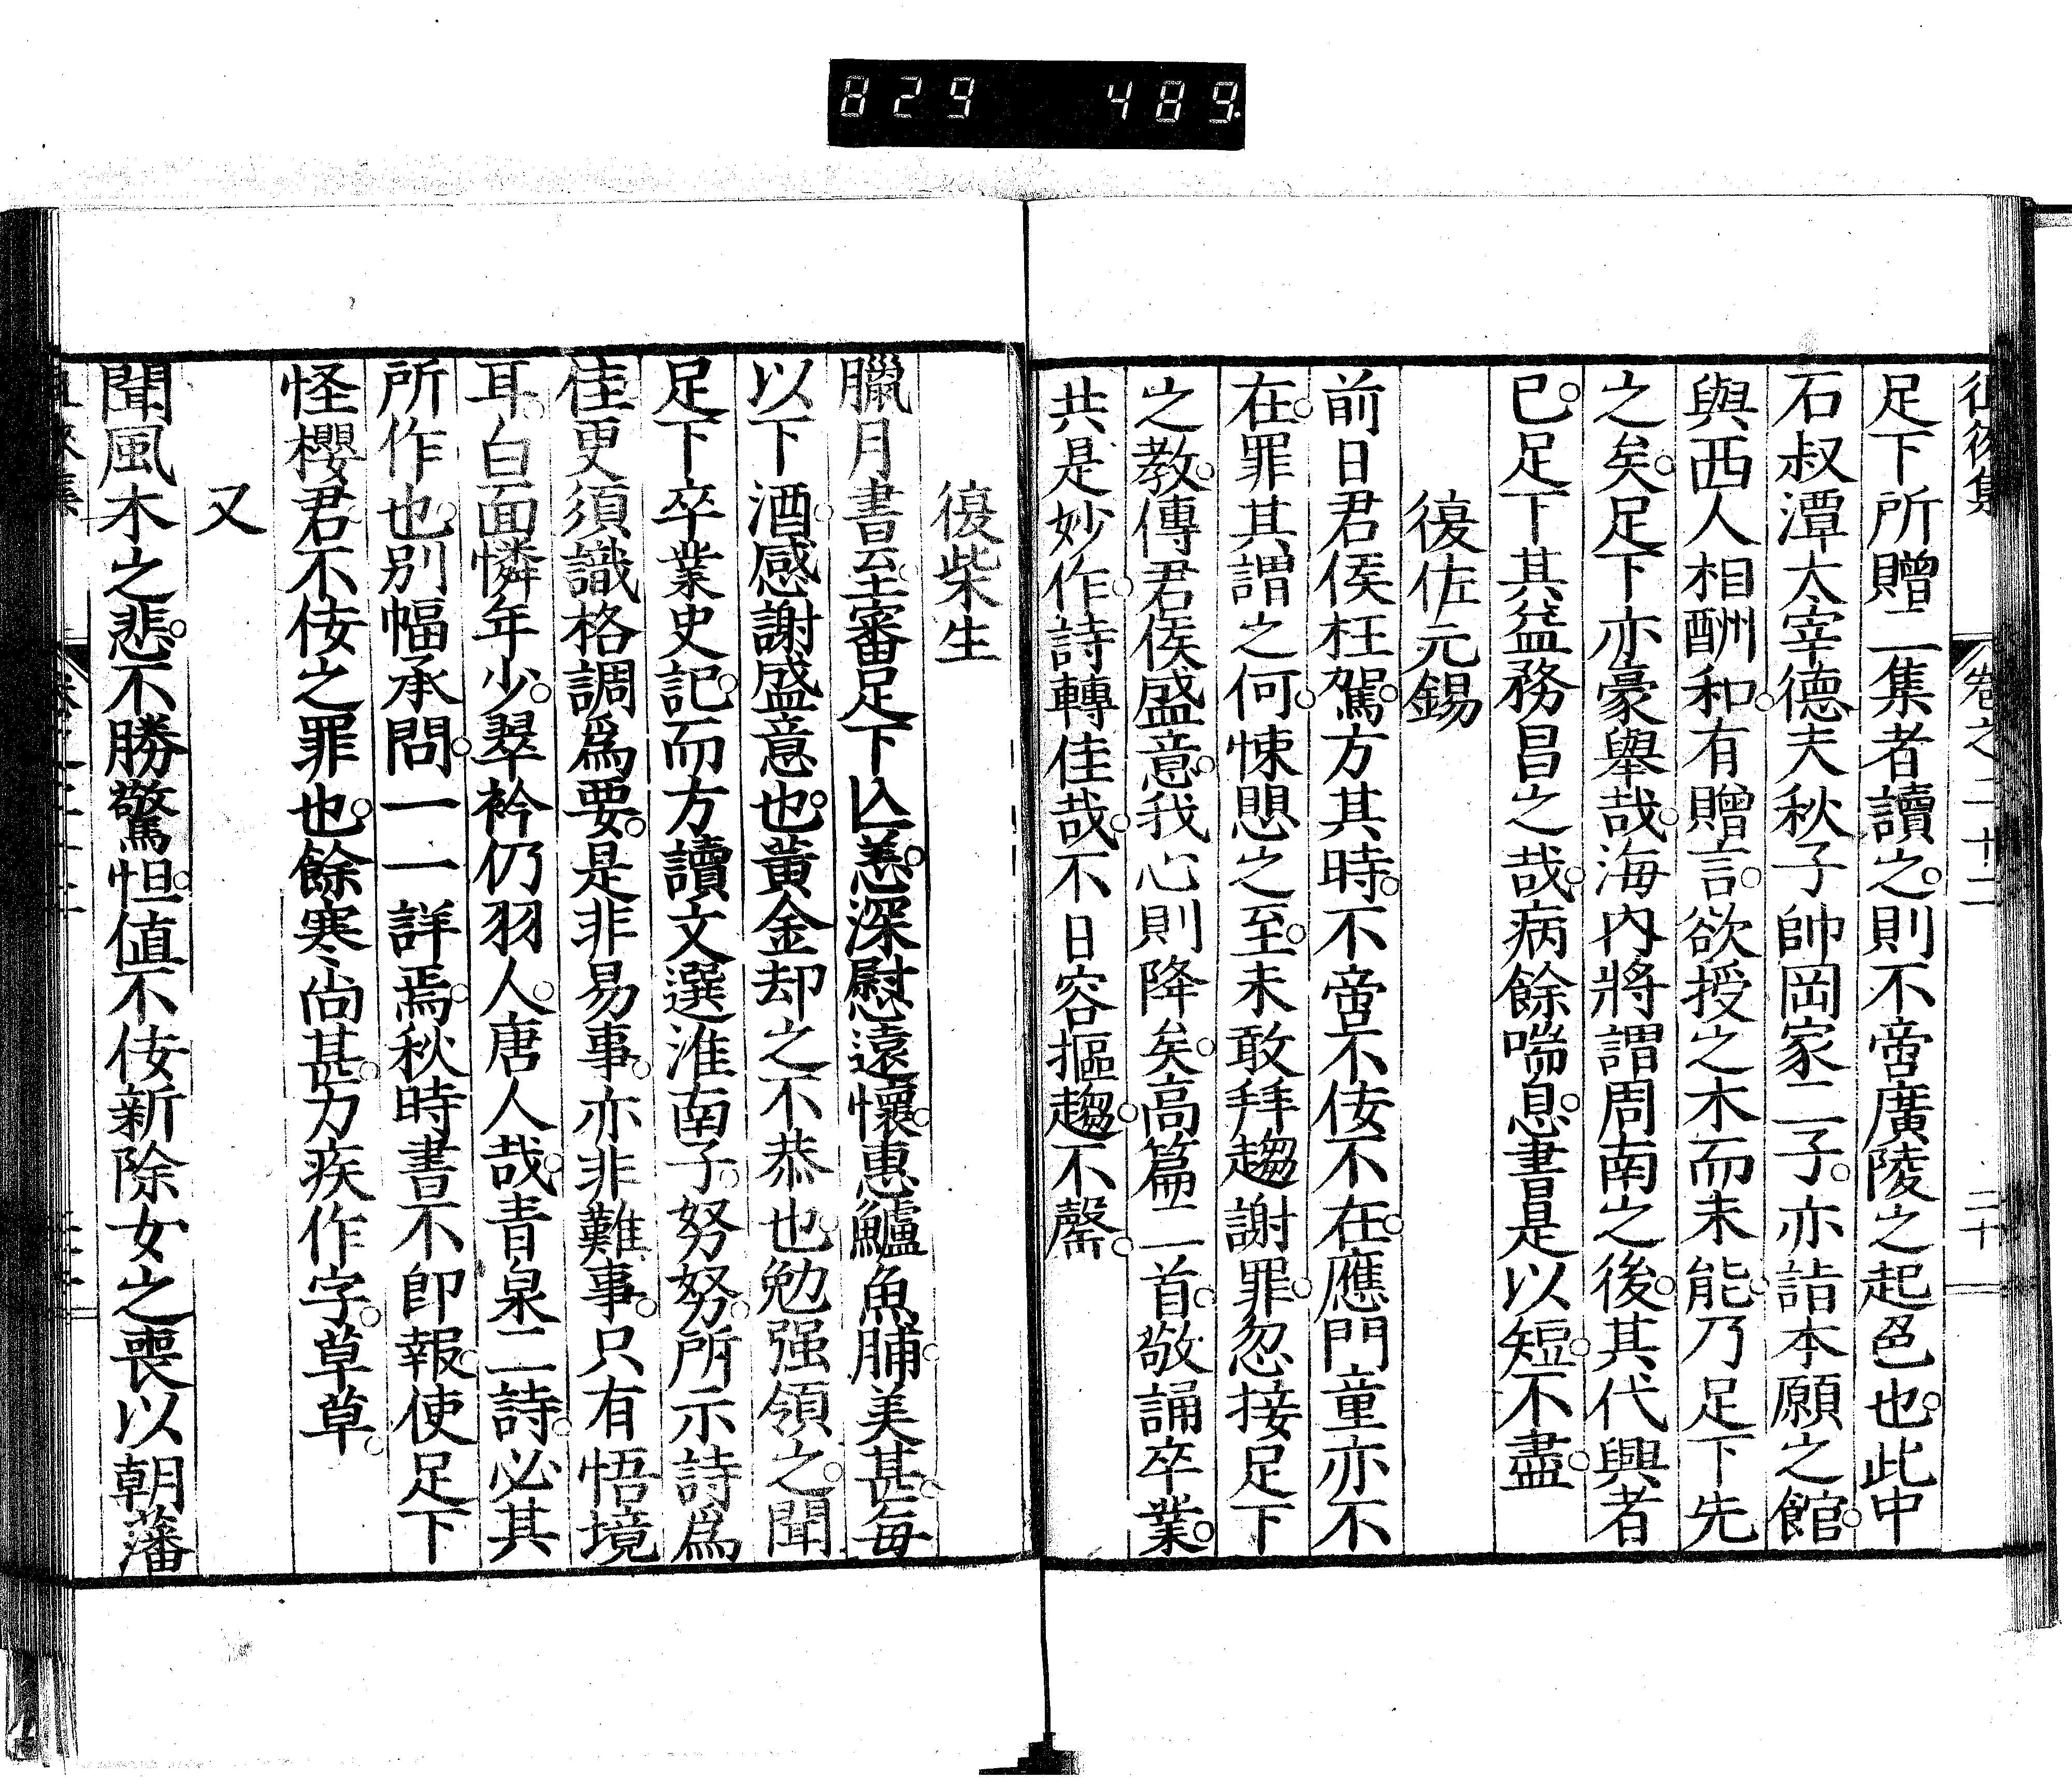 829 489
卷之二十二 二十
足下所贈二集者讀之則不啻廣陵之起色也此中
石叔潭太宰德夫秋子帥岡家二子亦詣本願之館
與西人相酬和有贈言欲授之木而未能乃足下先
之矣足下亦豪舉哉海內將謂周南之後其代興者
已足下其益務昌之哉病餘喘息書是以短不盡
復佐元錫
前日君侯枉駕方其時不啻不佞不在應門童亦不
在罪其謂之何悚恧之至未敢拜趨謝罪忽接足下
之教傳君侯盛意我心則降矣高篇二首敬誦卒業
共是妙作詩轉佳哉不日容摳趨不罄
復柴生
臘月書至審足下亾恙深慰遠懷惠鱸魚脯美甚每
以下酒感謝盛意也黃金却之不恭也勉强領之聞
足下卒業史記而方讀文選淮南子努努所示詩爲
佳更須識格調爲要是非易事亦非難事只有悟境
耳白面憐年少翠衿仍羽人唐人哉青泉二詩必其
所作也別幅承問一一詳焉秋時書不卽報使足下
怪櫻君不佞之罪也餘寒尙甚力疾作字草草
又
聞風木之悲不勝驚怛値不佞新除女之喪以朝藩